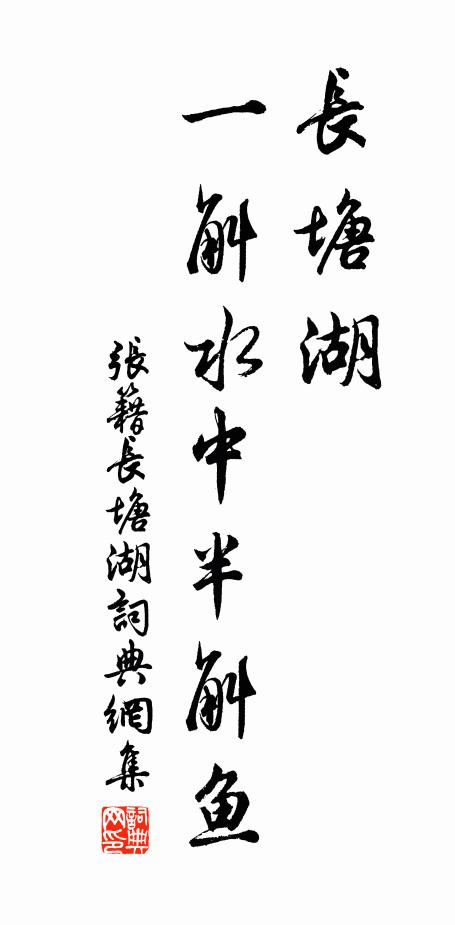 長塘湖
一斛水中半斛鱼
張籍長塘湖詞典網集
詞典
网印